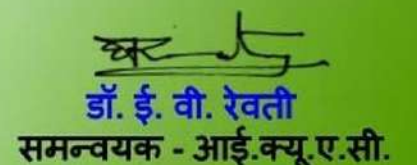 डॉ. ई. वी. रेवती
समन्वयक - आई.क्यू.ए.सी.